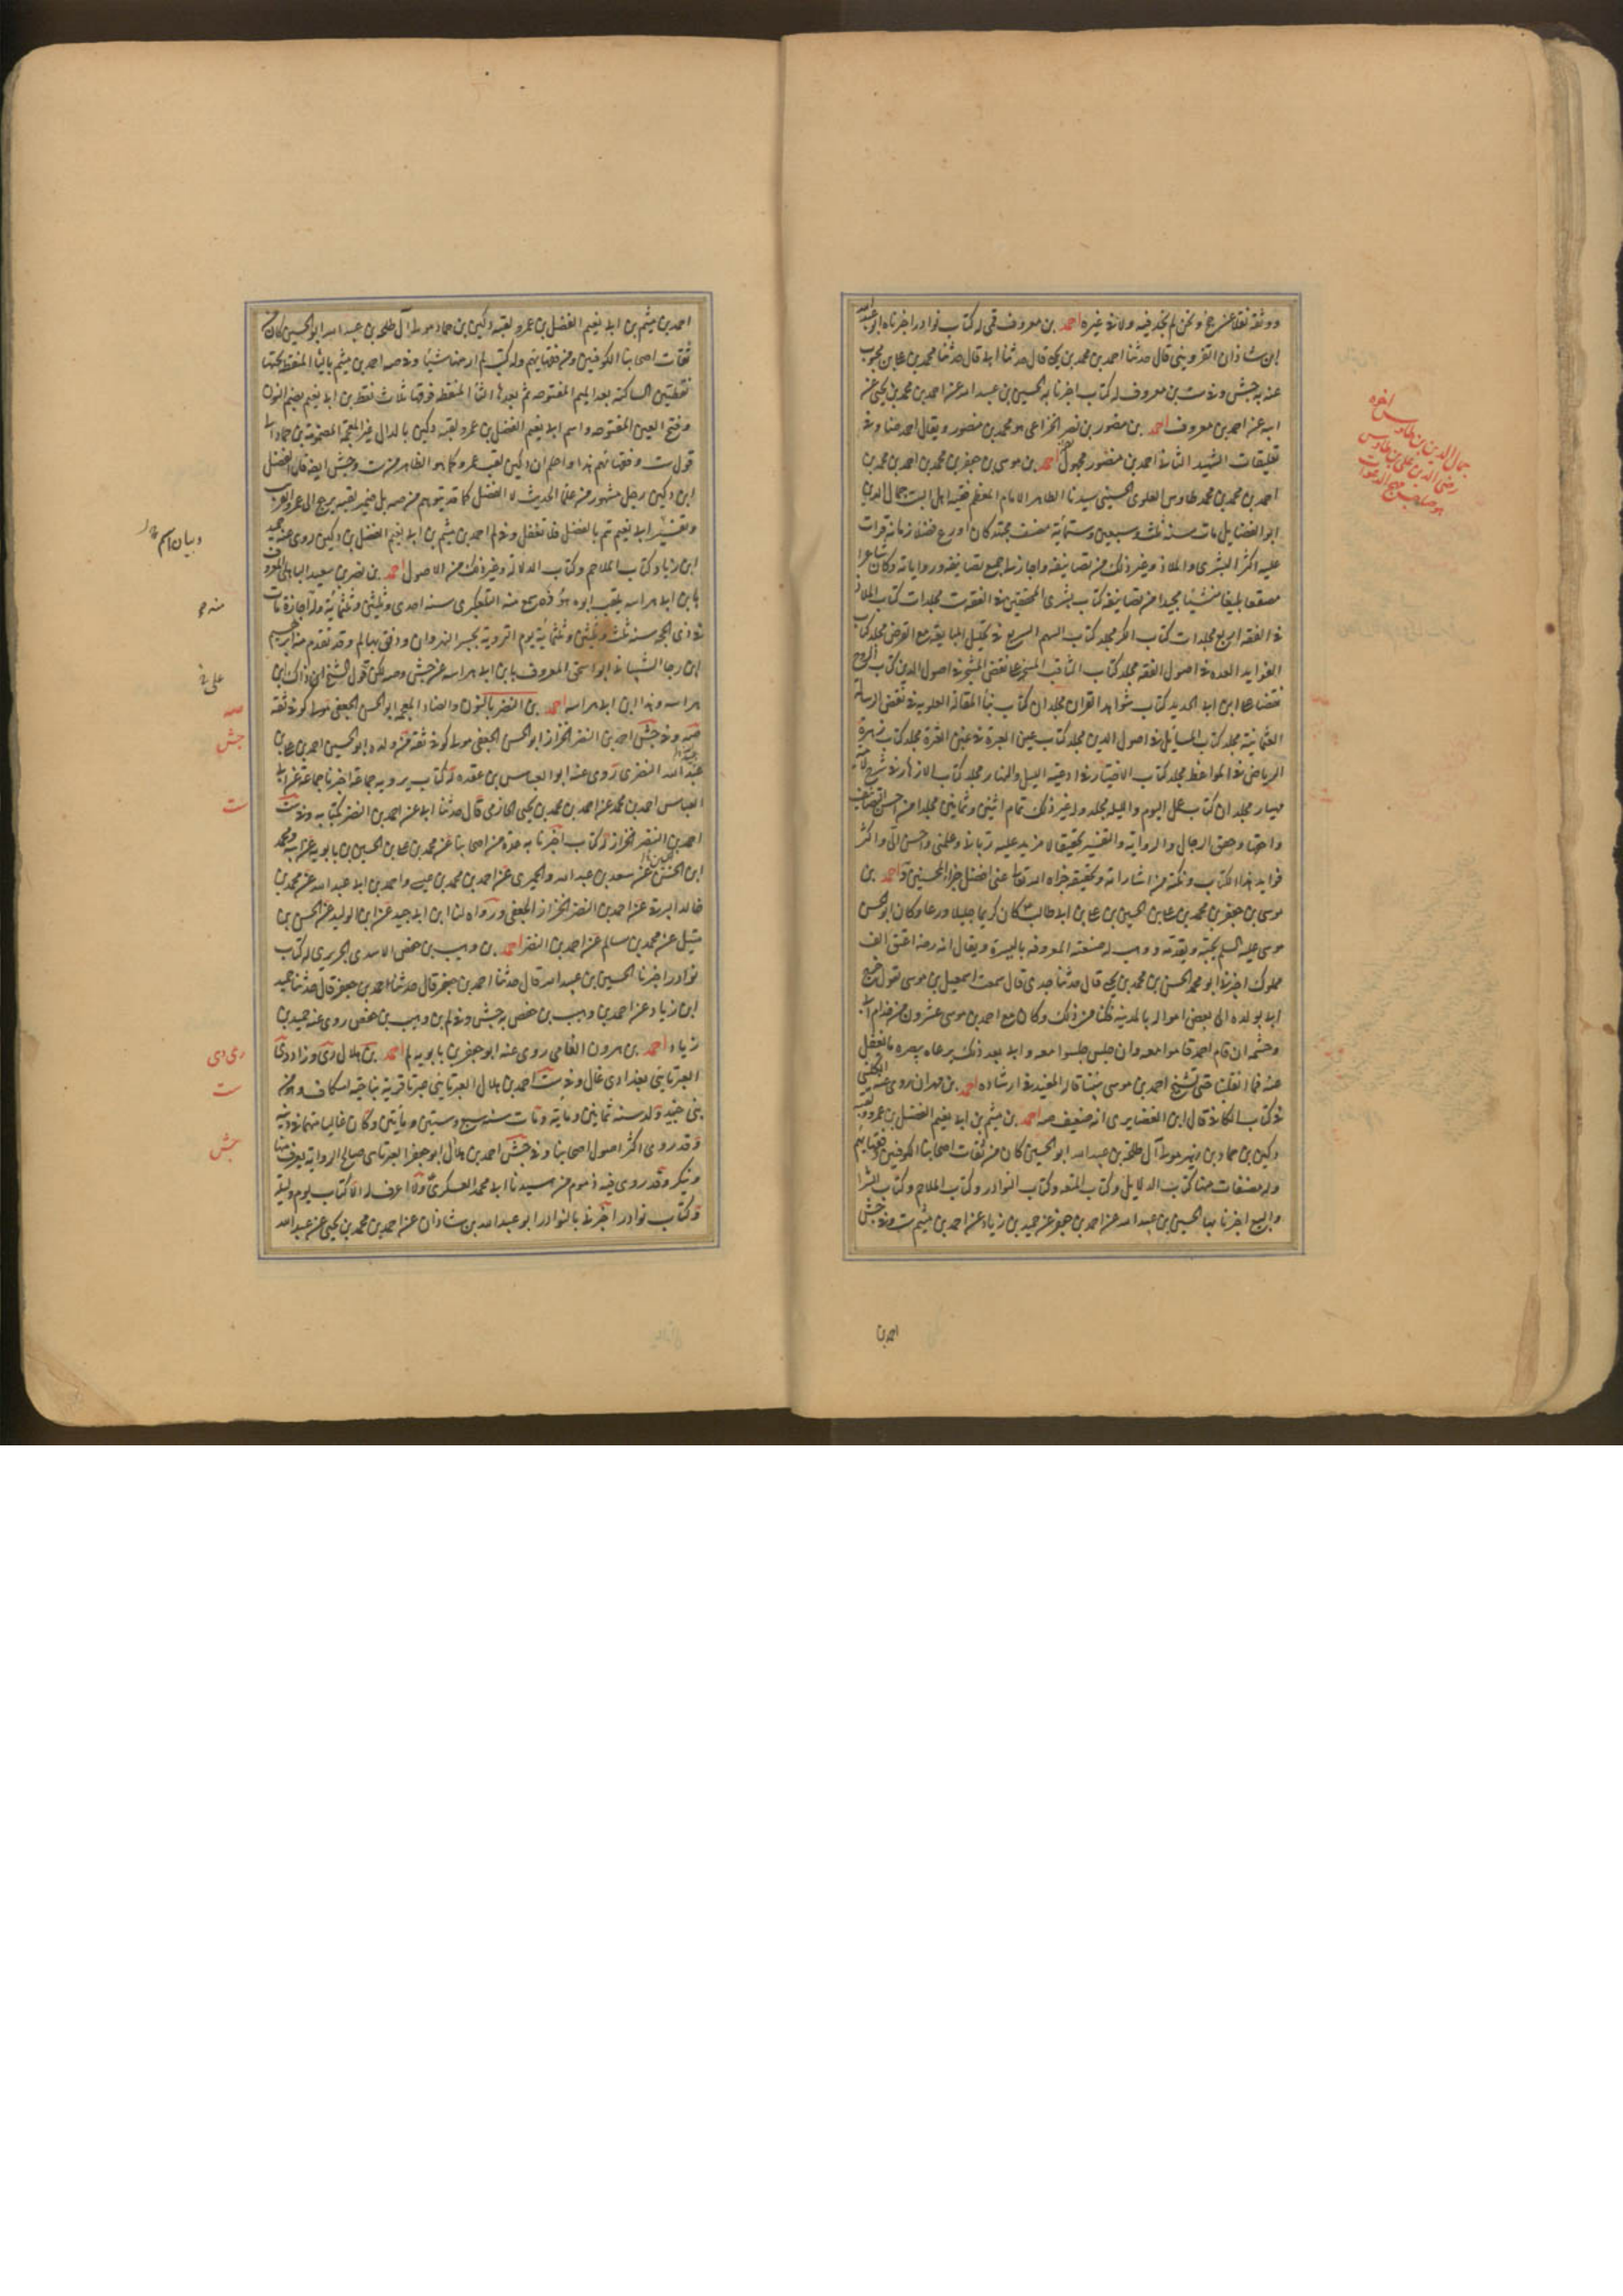 ووثقه نقلا عن جخ ونحن لم نجد فيه ولا في غيره احمد بن معروف قمى له كتاب نوادر اخبرناه ابو عبدالله
ابن شاذان القزويني قال حدثنا احمد بن محمد بن يحيى قال حدثنا ابي قال حدثنا محمد بن علي بن محبوب
عنه به جش وفي ست بن معروف له كتاب اخبرنا به الحسين بن عبيد الله عن احمد بن محمد بن يحيى عن
ابيه عن احمد بن معروف احمد بن منصور بن نصر الخزاعي هو محمد بن منصور ويقال احمد ضا وفي
تعليقات الشهيد الثاني احمد بن منصور مجهول احمد بن موسى بن جعفر بن محمد بن احمد بن محمد بن
احمد بن محمد بن محمد طاوس العلوي الحسيني سيدنا الطاهر الامام المعظم فقيه اهل البيت جمال الدين
ابو الفضايل مات سنة ثلث وسبعين وستمائة مصنف مجتهد كان اورع فضلاء زمانه قرات
عليه اكثر البشرى والملاذ وغير ذلك من تصانيفه واجاز لي جميع تصانيفه ورواياته وكان شاعرا
مصقعا بليغا منشيا مجيدا من تصانيفه كتاب بشرى المحققين في الفقه ست مجلدات كتاب الملاذ
في الفقه اربع مجلدات كتاب الكر مجلد كتاب السهم السريع في تحليل المبايعة مع القرض مجلد كتاب
الفوايد العدة في اصول الفقه مجلد كتاب الثاقب المسخر على نقض المشجر في اصول الدين كتاب الروح
نقضا على ابن ابي الحديد كتاب شواهد القران مجلدان كتاب بناء المقالة العلوية في نقض الرسالة
العثمانية مجلد كتاب المسائل في اصول الدين مجلد كتاب عين العبرة في غبن العترة مجلد كتاب زهرة
الرياض في المواعظ مجلد كتاب الاختيار في ادعية الليل والنهار مجلد كتاب الازهار في شرح لامية
مهيار مجلدان كتاب عمل اليوم والليلة مجلد وله غير ذلك تمام اثنين وثمانين مجلدا من احسن التصانيف
واحقها وحقق الرجال والرواية والتفسير تحقيقا لا مزيد عليه رباني وعلمني واحسن الي واكثر
فوايد هذا الكتاب ونكته من اشاراته وتحقيقه جزاه الله تعالى عني افضل جزاء المحسنين د احمد بن
موسى بن جعفر بن محمد بن علي بن الحسين بن علي بن ابي طالب كان كريما جليلا ورعا وكان ابو الحسن
موسى عليه السلم يحبه ويقدمه ووهب له ضيعته المعروفه باليسيرة ويقال انه رضه اعتق الف
مملوك اخبرنا ابو محمد الحسن بن محمد بن يحيى قال حدثنا جدي قال سمعت اسمعيل بن موسى يقول خرج
ابي بولده الى بعض امواله بالمدينة فكنا من ذلك وكان مع احمد بن موسى عشرون من خدام ابي
وحشمه ان قام احمد قاموا معه وان جلس جلسوا معه وابي بعد ذلك يرعاه ببصره ما يغفل
عنه فما انقلبنا حتى تشيخ احمد بن موسى بيننا قاله المفيد في ارشاده احمد بن مهران روى عنه الكليني
في كتاب الكافي قال ابن الغضايري انه ضعيف صه احمد بن ميثم بن ابي نعيم الفضل بن عمرو ولقبه
دكين بن حماد بن زهير مولى آل طلحة بن عبيد الله ابو الحسين كان من ثقات اصحابنا الكوفيين وفقهائهم
وله مصنفات منها كتاب الدلايل وكتاب المتعه وكتاب النوادر وكتاب الملاحم وكتاب الشراء
والبيع اخبرنا بها الحسين بن عبيد الله عن احمد بن جعفر عن حميد بن زياد عن احمد بن ميثم ست وفي جش
احمد بن
جمال الدين ابن طاوس اخوه
رضي الدين علي بن طاوس
هو صاحب مهج الدعوات
احمد بن ميثم بن ابي نعيم الفضل بن عمرو لقبه دكين بن حماد مولى آل طلحه بن عبيد الله ابو الحسين كان من
ثقات اصحابنا الكوفيين ومن فقهائهم وله كتب لم ار منها شيئا وفي صه احمد بن ميثم بالياء المنقطة تحتها
نقطتين الساكنة بعد الميم المفتوحه ثم بعدها الثاء المنقطه فوقها ثلاث نقط بن ابي نعيم بضم النون
وفتح العين المفتوحه واسم ابي نعيم الفضل بن عمرو لقبه دكين بالدال غير المعجمة المضمومة بن حماد الى
قول ست وفقهائهم هذا واعلم ان دكين لقب عمرو كما هو الظاهر من ست وجش ايضا فان الفضل
ابن دكين رجل مشهور من علماء الحديث لا الفضل كما قد يتوهم من صه بل ضمير لقبه يرجع الى عمرو لقربه
وتفسير ابي نعيم تم بالفضل فلا تغفل وفي لم احمد بن ميثم بن ابي نعيم الفضل بن دكين روى عنه حميد
ابن زياد كتاب الملاحم وكتاب الدلالة وغير ذلك من الاصول احمد بن نصر بن سعيد الباهلي المعروف
بابن ابي هراسه يلقب ابوه هوذه سمع منه التلعكبري سنه احدى وثلثين وثلثمائة وله اجازة مات
في ذي الحجه سنه ثلث وثلثين وثلثمائة يوم التروية بجسر النهروان ودفن بها لم وقد تقدم منا ابرهيم
ابن رجا الشيباني ابو اسحق المعروف بابن ابي هراسه عن جش وصه لكن قول الشيخ ابن ذاك ابن
هراسه وهذا ابن ابي هراسه احمد بن النضر بالنون والضاد المعجمه ابو الحسن الجعفي مولى كوفي ثقة
صه وفي جش احمد بن النضر الخزاز ابو الحسن الجعفي مولى كوفي ثقة من ولده ابو الحسين احمد بن علي بن
عبيد الله النضري روى عنه ابو العباس بن عقده له كتاب يرويه جماعة اخبرنا جماعة عن ابي
العباس احمد بن محمد عن احمد بن محمد بن يحيى الحازمي قال حدثنا ابي عن احمد بن النضر بكتابه وفي ست
احمد بن النضر الخزاز له كتاب اخبرنا به عدة من اصحابنا عن محمد بن علي بن الحسين بن بابويه عن ابيه ومحمد
ابن الحسن عن سعد بن عبد الله والحميري عن احمد بن محمد بن عيسى واحمد بن ابي عبد الله عن محمد بن
خالد البرقي عن احمد بن النضر الخزاز الجعفي ورواه لنا ابن ابي جيد عن ابن الوليد عن الحسن بن
متيل عن محمد بن سالم عن احمد بن النضر احمد بن وهيب بن حفص الاسدي الجريري له كتاب
نوادر اخبرنا الحسين بن عبيد الله قال حدثنا احمد بن جعفر قال حدثنا احمد بن جعفر قال حدثنا حميد
ابن زياد عن احمد بن وهيب بن حفص به جش وفي لم بن وهيب بن حفص روى عنه حميد بن
زياد احمد بن هرون الفامي روى عنه ابو جعفر بن بابويه لم احمد بن هلال دي وزاد دي
العبرتايي بغدادي غال وفي ست احمد بن هلال العبرتايي عبرتا قرية بناحية اسكاف وهو من
بني جنيد ولد سنه ثمانين ومايه ومات سنه سبع وستين ومأيتين وكان غاليا متهما في دينه
وقد روى اكثر اصول اصحابنا وفي جش احمد بن هلال ابو جعفر العبرتايي صالح الرواية يعرف منها
وينكر وقد روى فيه ذموم من سيدنا ابي محمد العسكري ولا اعرف له الا كتاب يوم وليلة
وكتاب نوادر اخبرني بالنوادر ابو عبد الله بن شاذان عن احمد بن محمد بن يحيى عن عبد الله
صه
جش
ست
دي
ست
جش